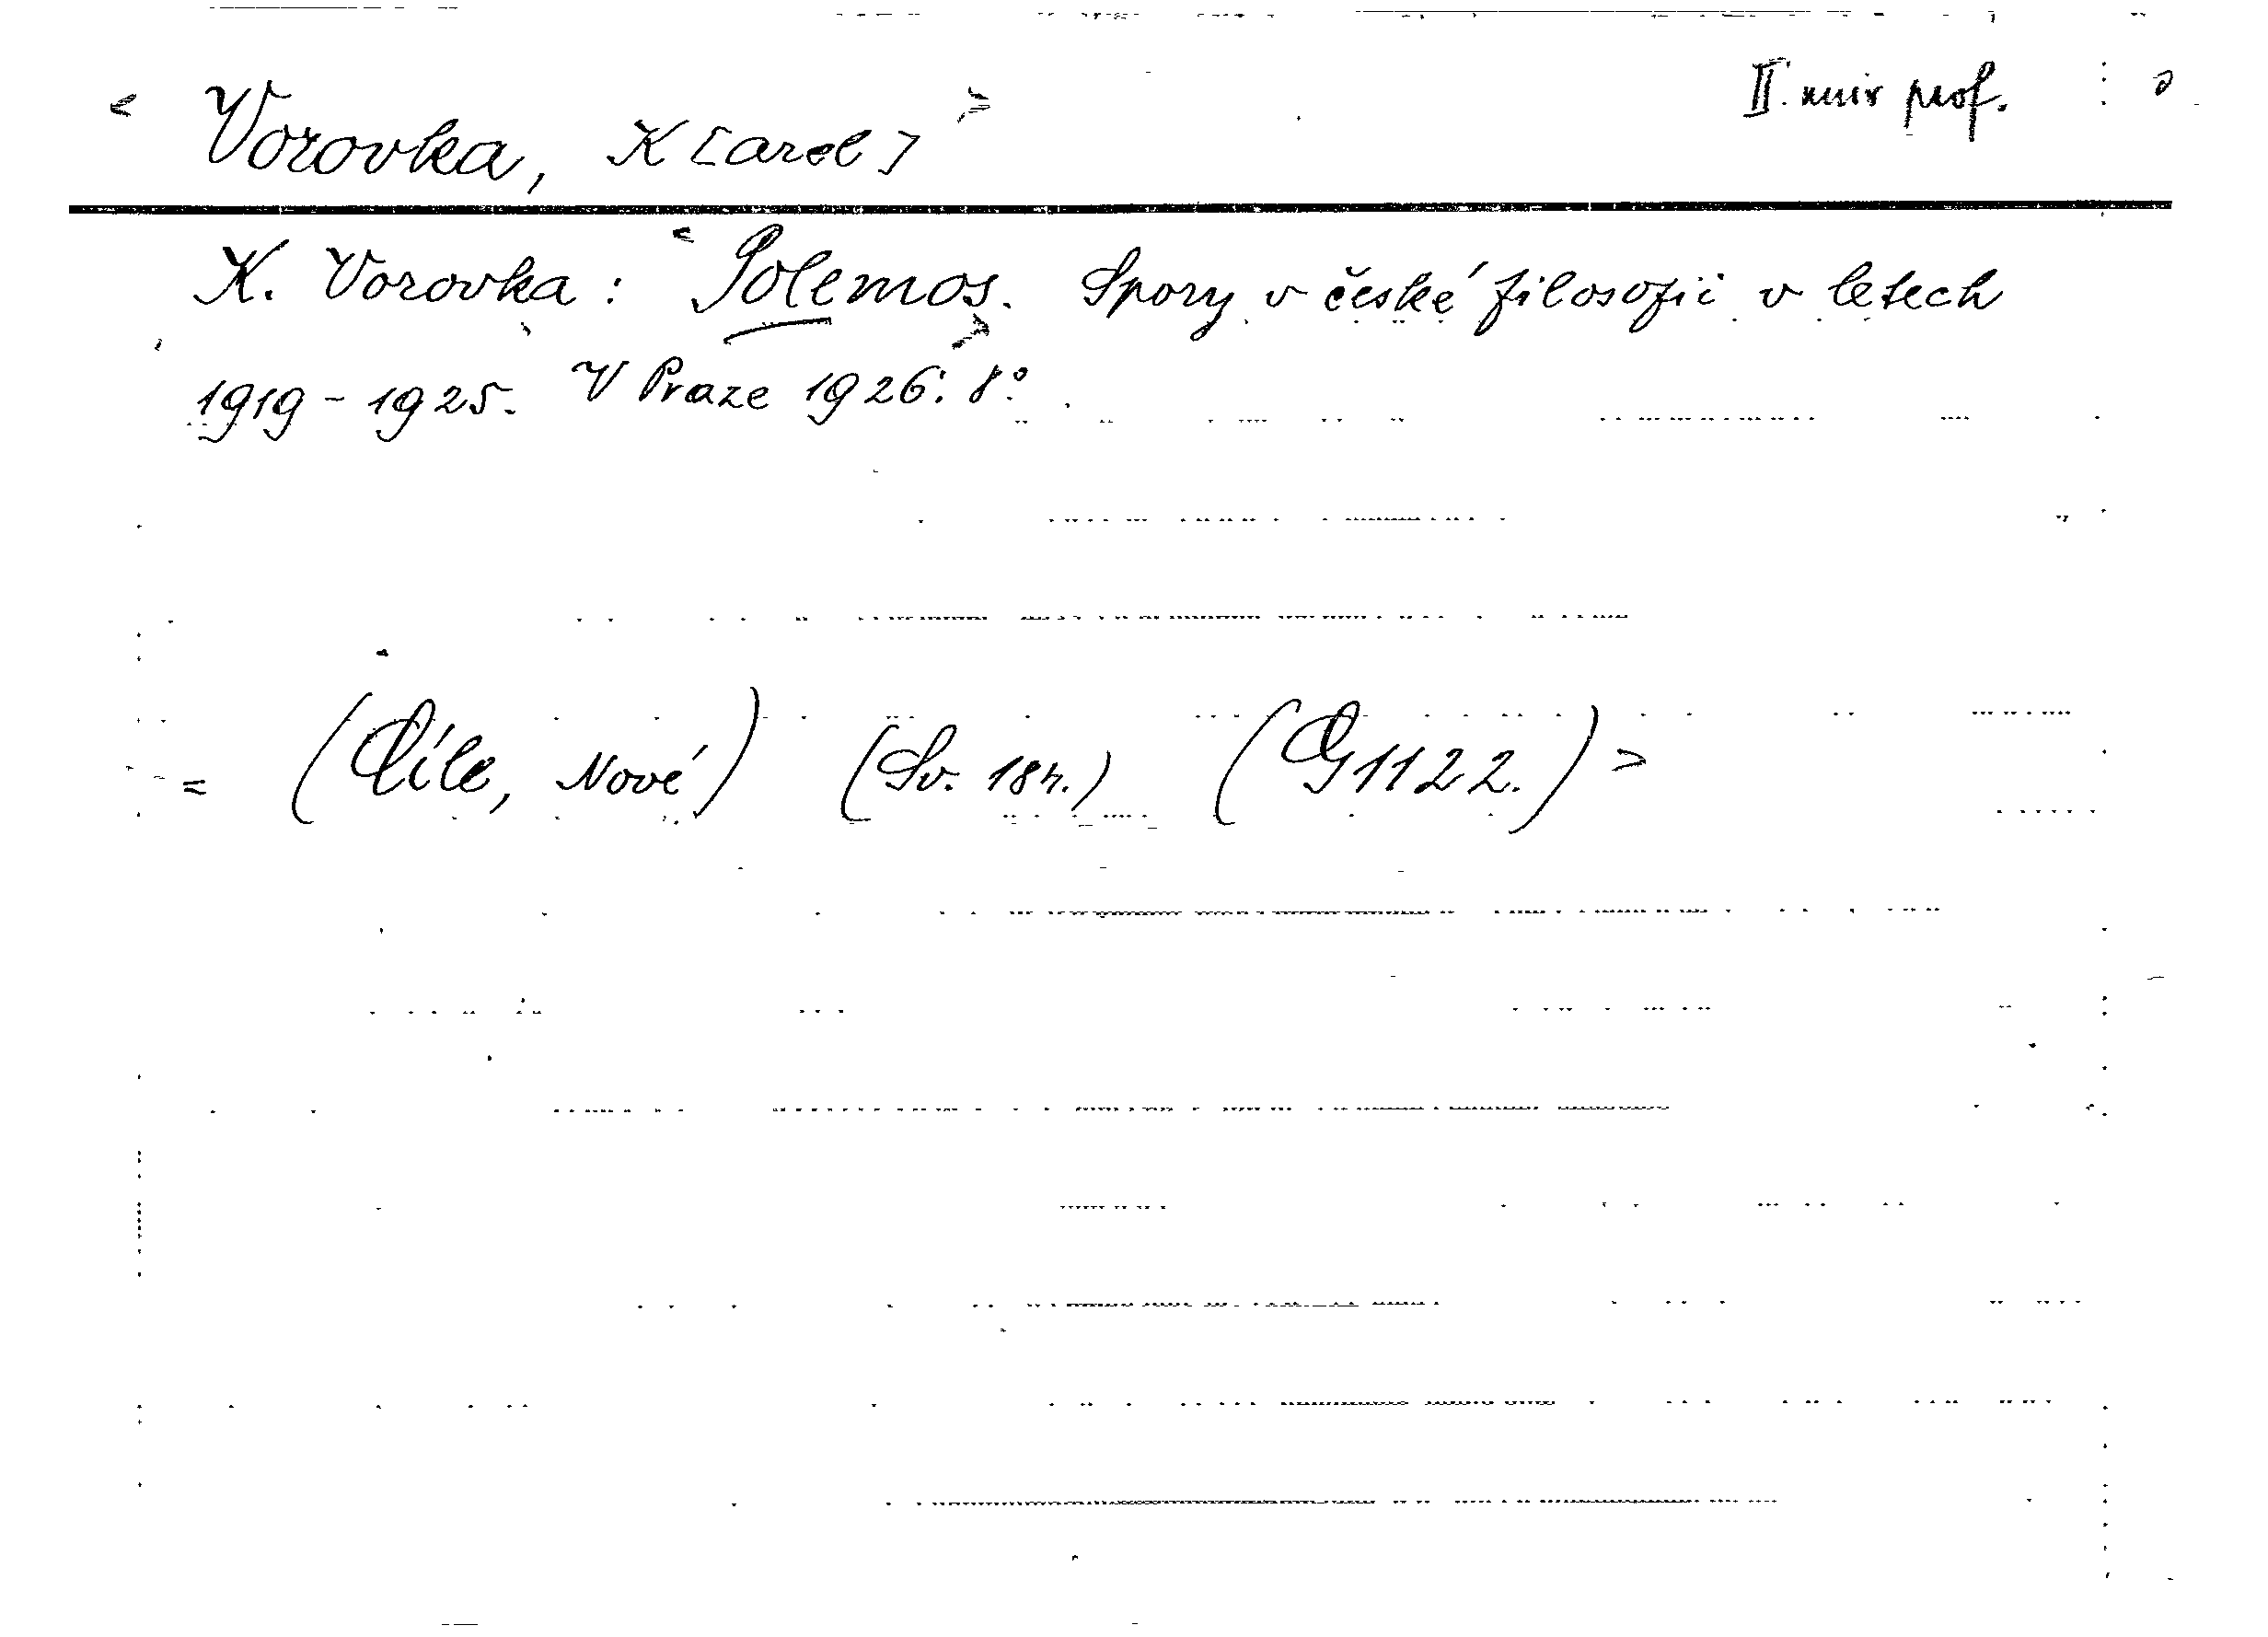 < Vorovka, K[arel] > II. univ prof.
K. Vorovka: < Polemos. > Spory v české filosofii v letech
1919 - 1925. V Praze 1926. 8°.
= (Cíle, Nové) (Sv. 184.) (G1122.) >